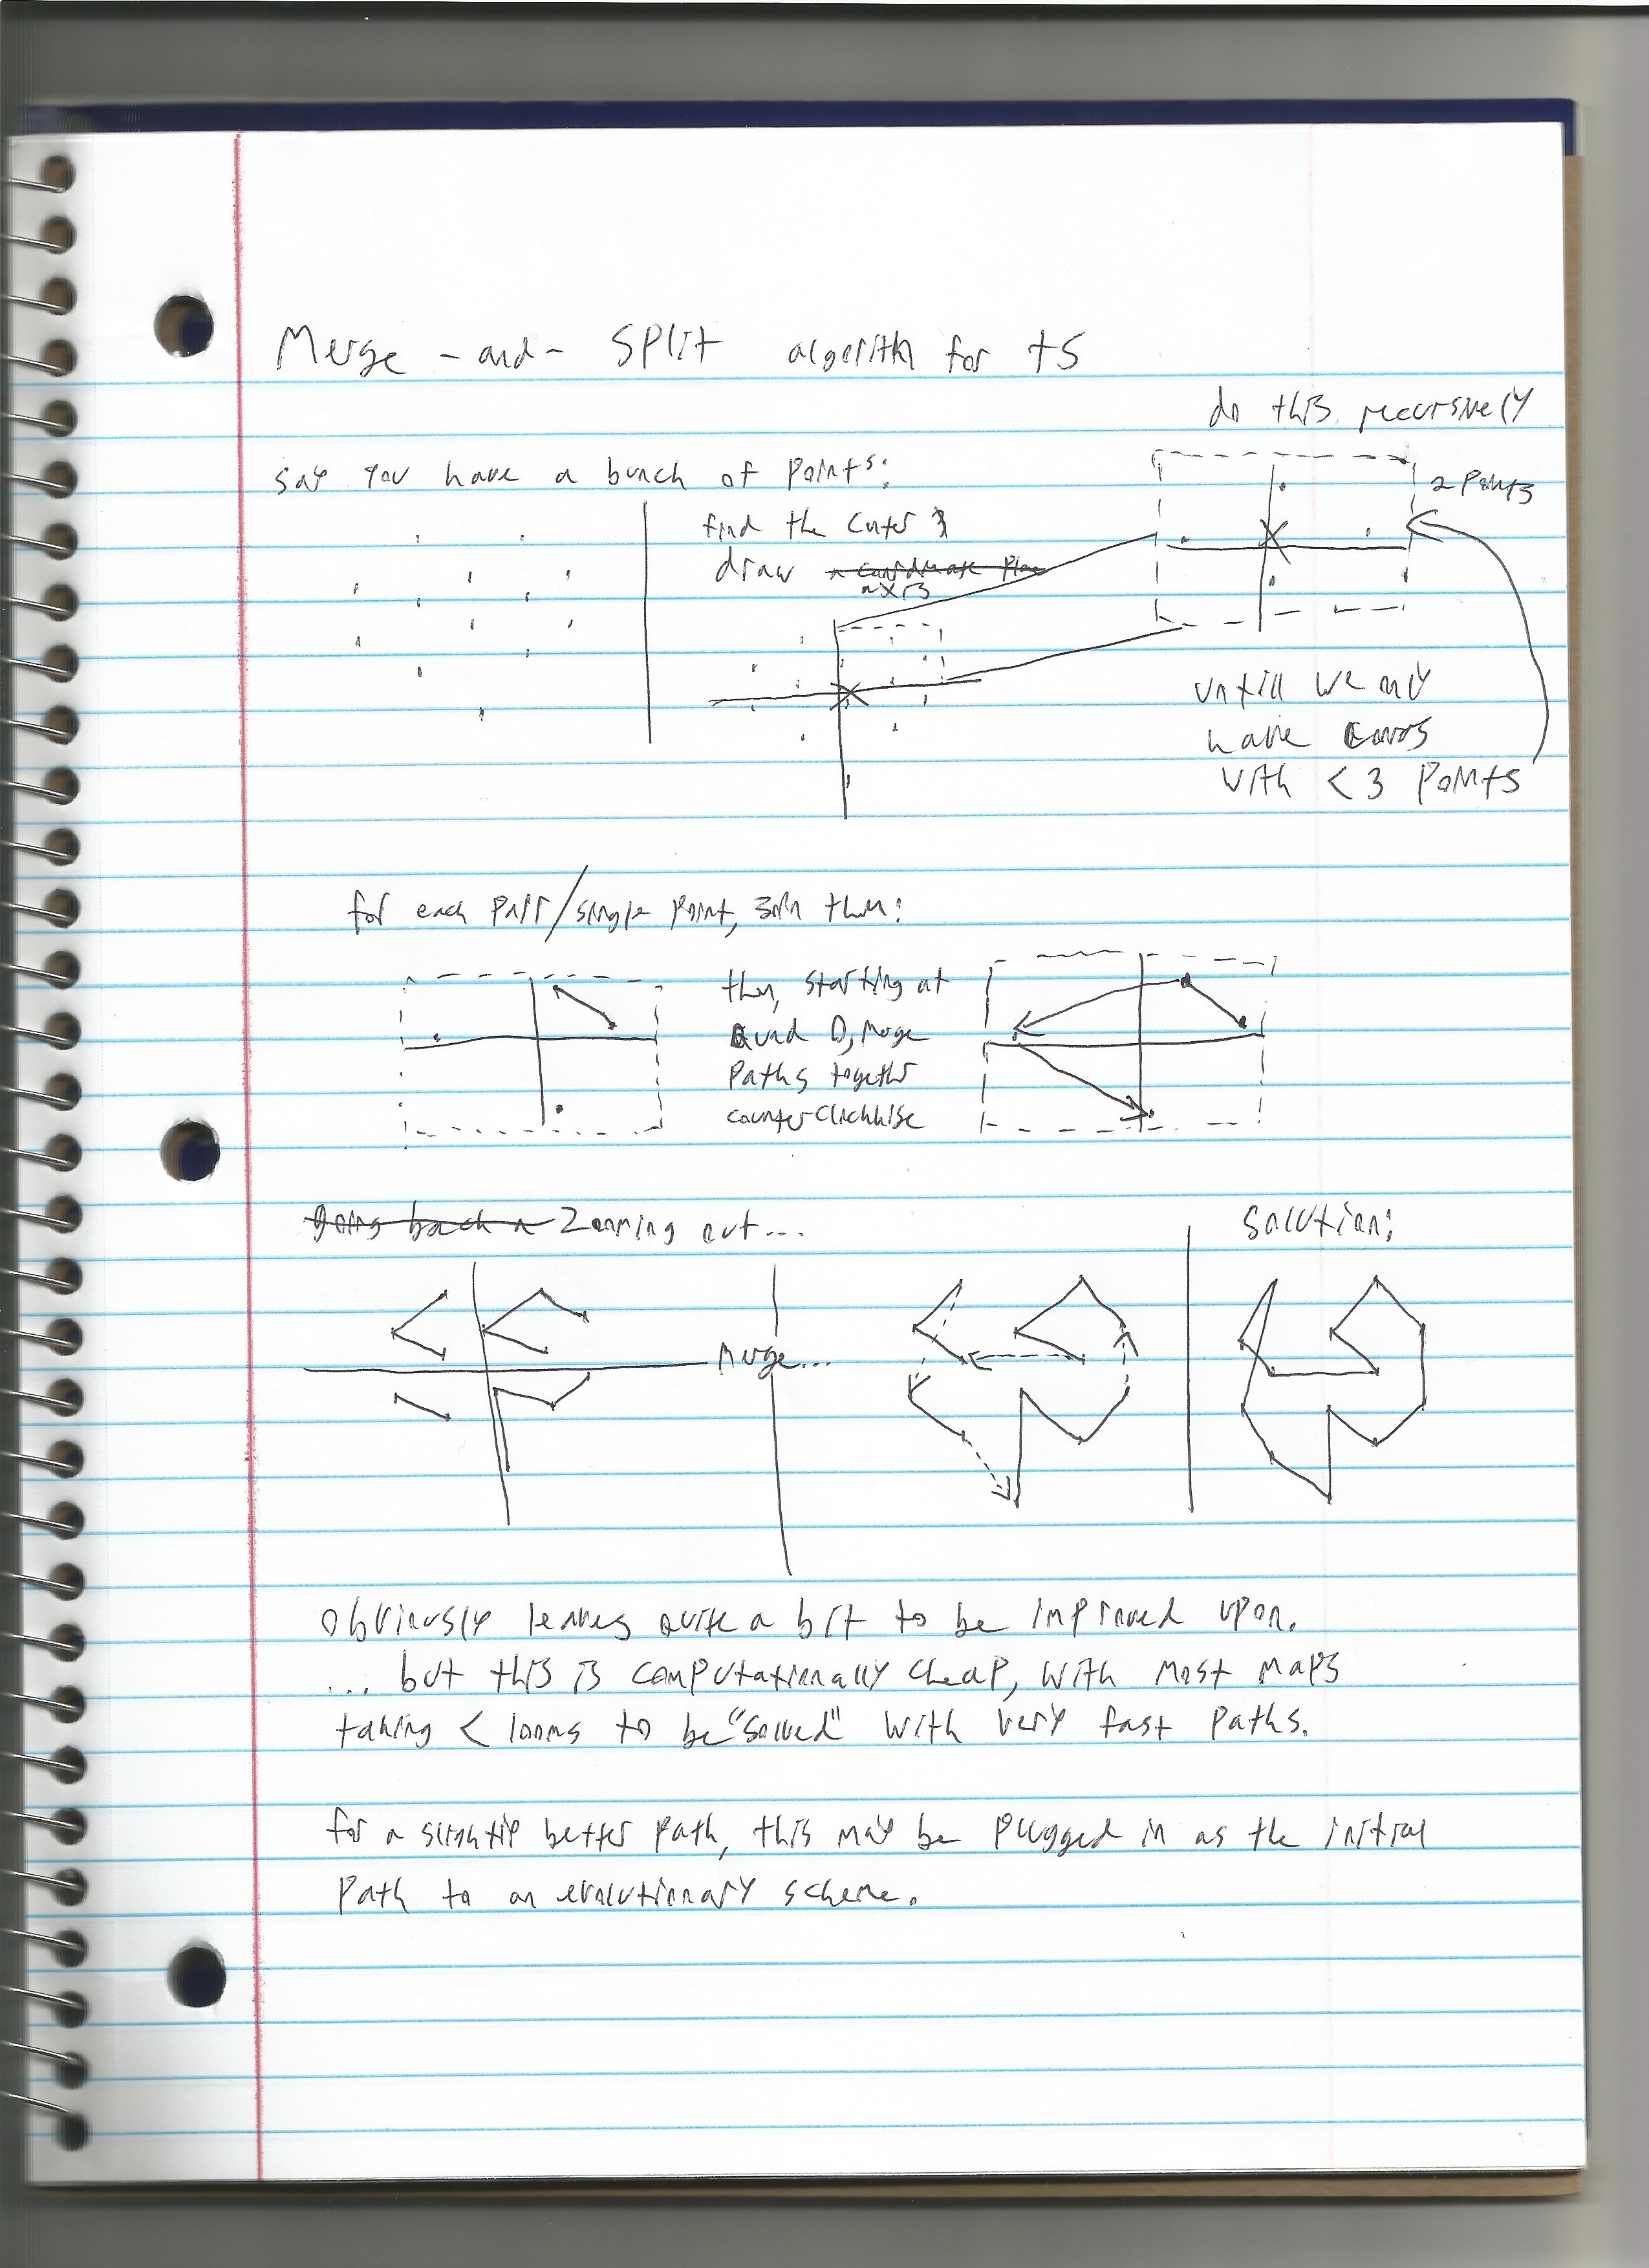 Merge-and-SPlit algorith for ts
do this recursively
say you have a bunch of Points:
2 Points
find the center &
draw a coordinate Plane
axis
untill we only
have
with < 3 Points
for each Pair/single point, join them:
then, starting at
Quad 0, Merge
Paths together
counter-clockwise
going back a Zooming out...
Solution:
Merge...
Obviously leaves quite a bit to be improved upon.
... but this is computationally cheap, with most maps
taking < 100ms to be "solved" with very fast Paths.
for a slightly better path, this may be plugged in as the initial
Path to an evolutionary scheme.